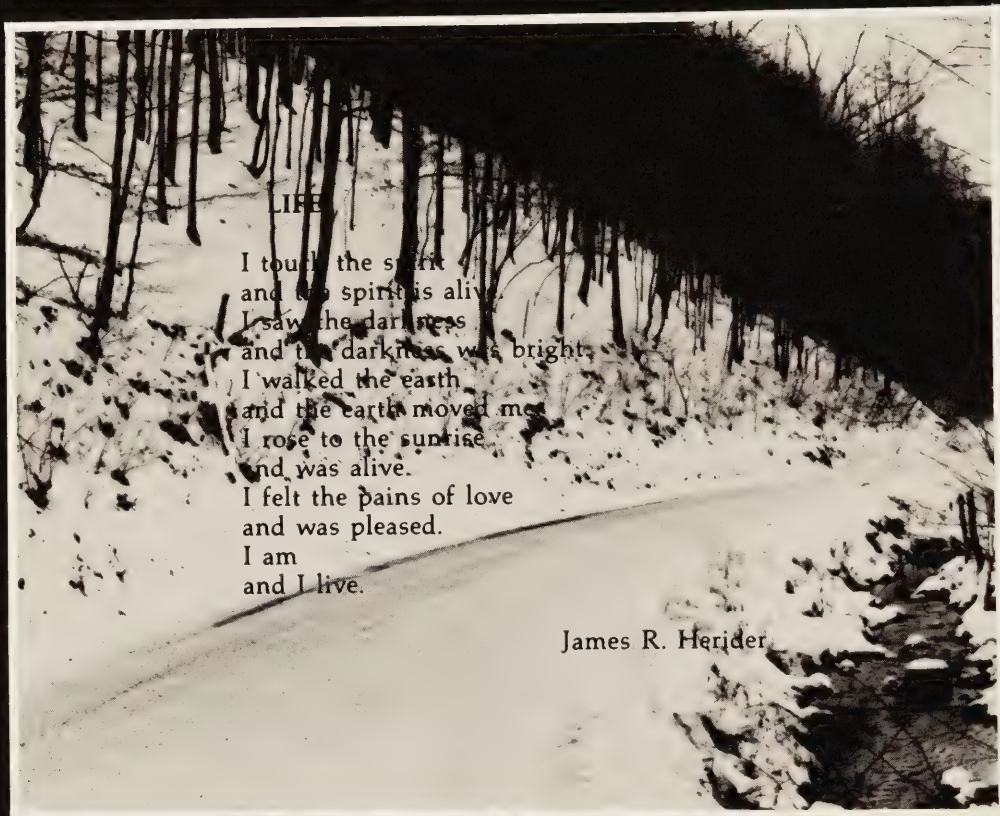 LIFE
I touch the spirit
and the spirit is alive.
I saw the darkness
and the darkness was bright.
I walked the earth
and the earth moved me.
I rose to the sunrise
and was alive.
I felt the pains of love
and was pleased.
I am
and I live.
James R. Herider